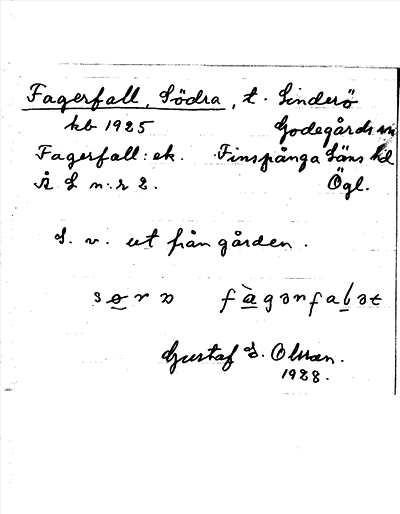 Fagerfall, Södra, t. Linderö
kb 1925 Godegårds sn
Fagerfall: ek. Finspånga Läns hd
Å L n:r 2. Ögl.
S. v. ut från gården.
fàgərfalət
Gustaf L. Olsson.
1928.